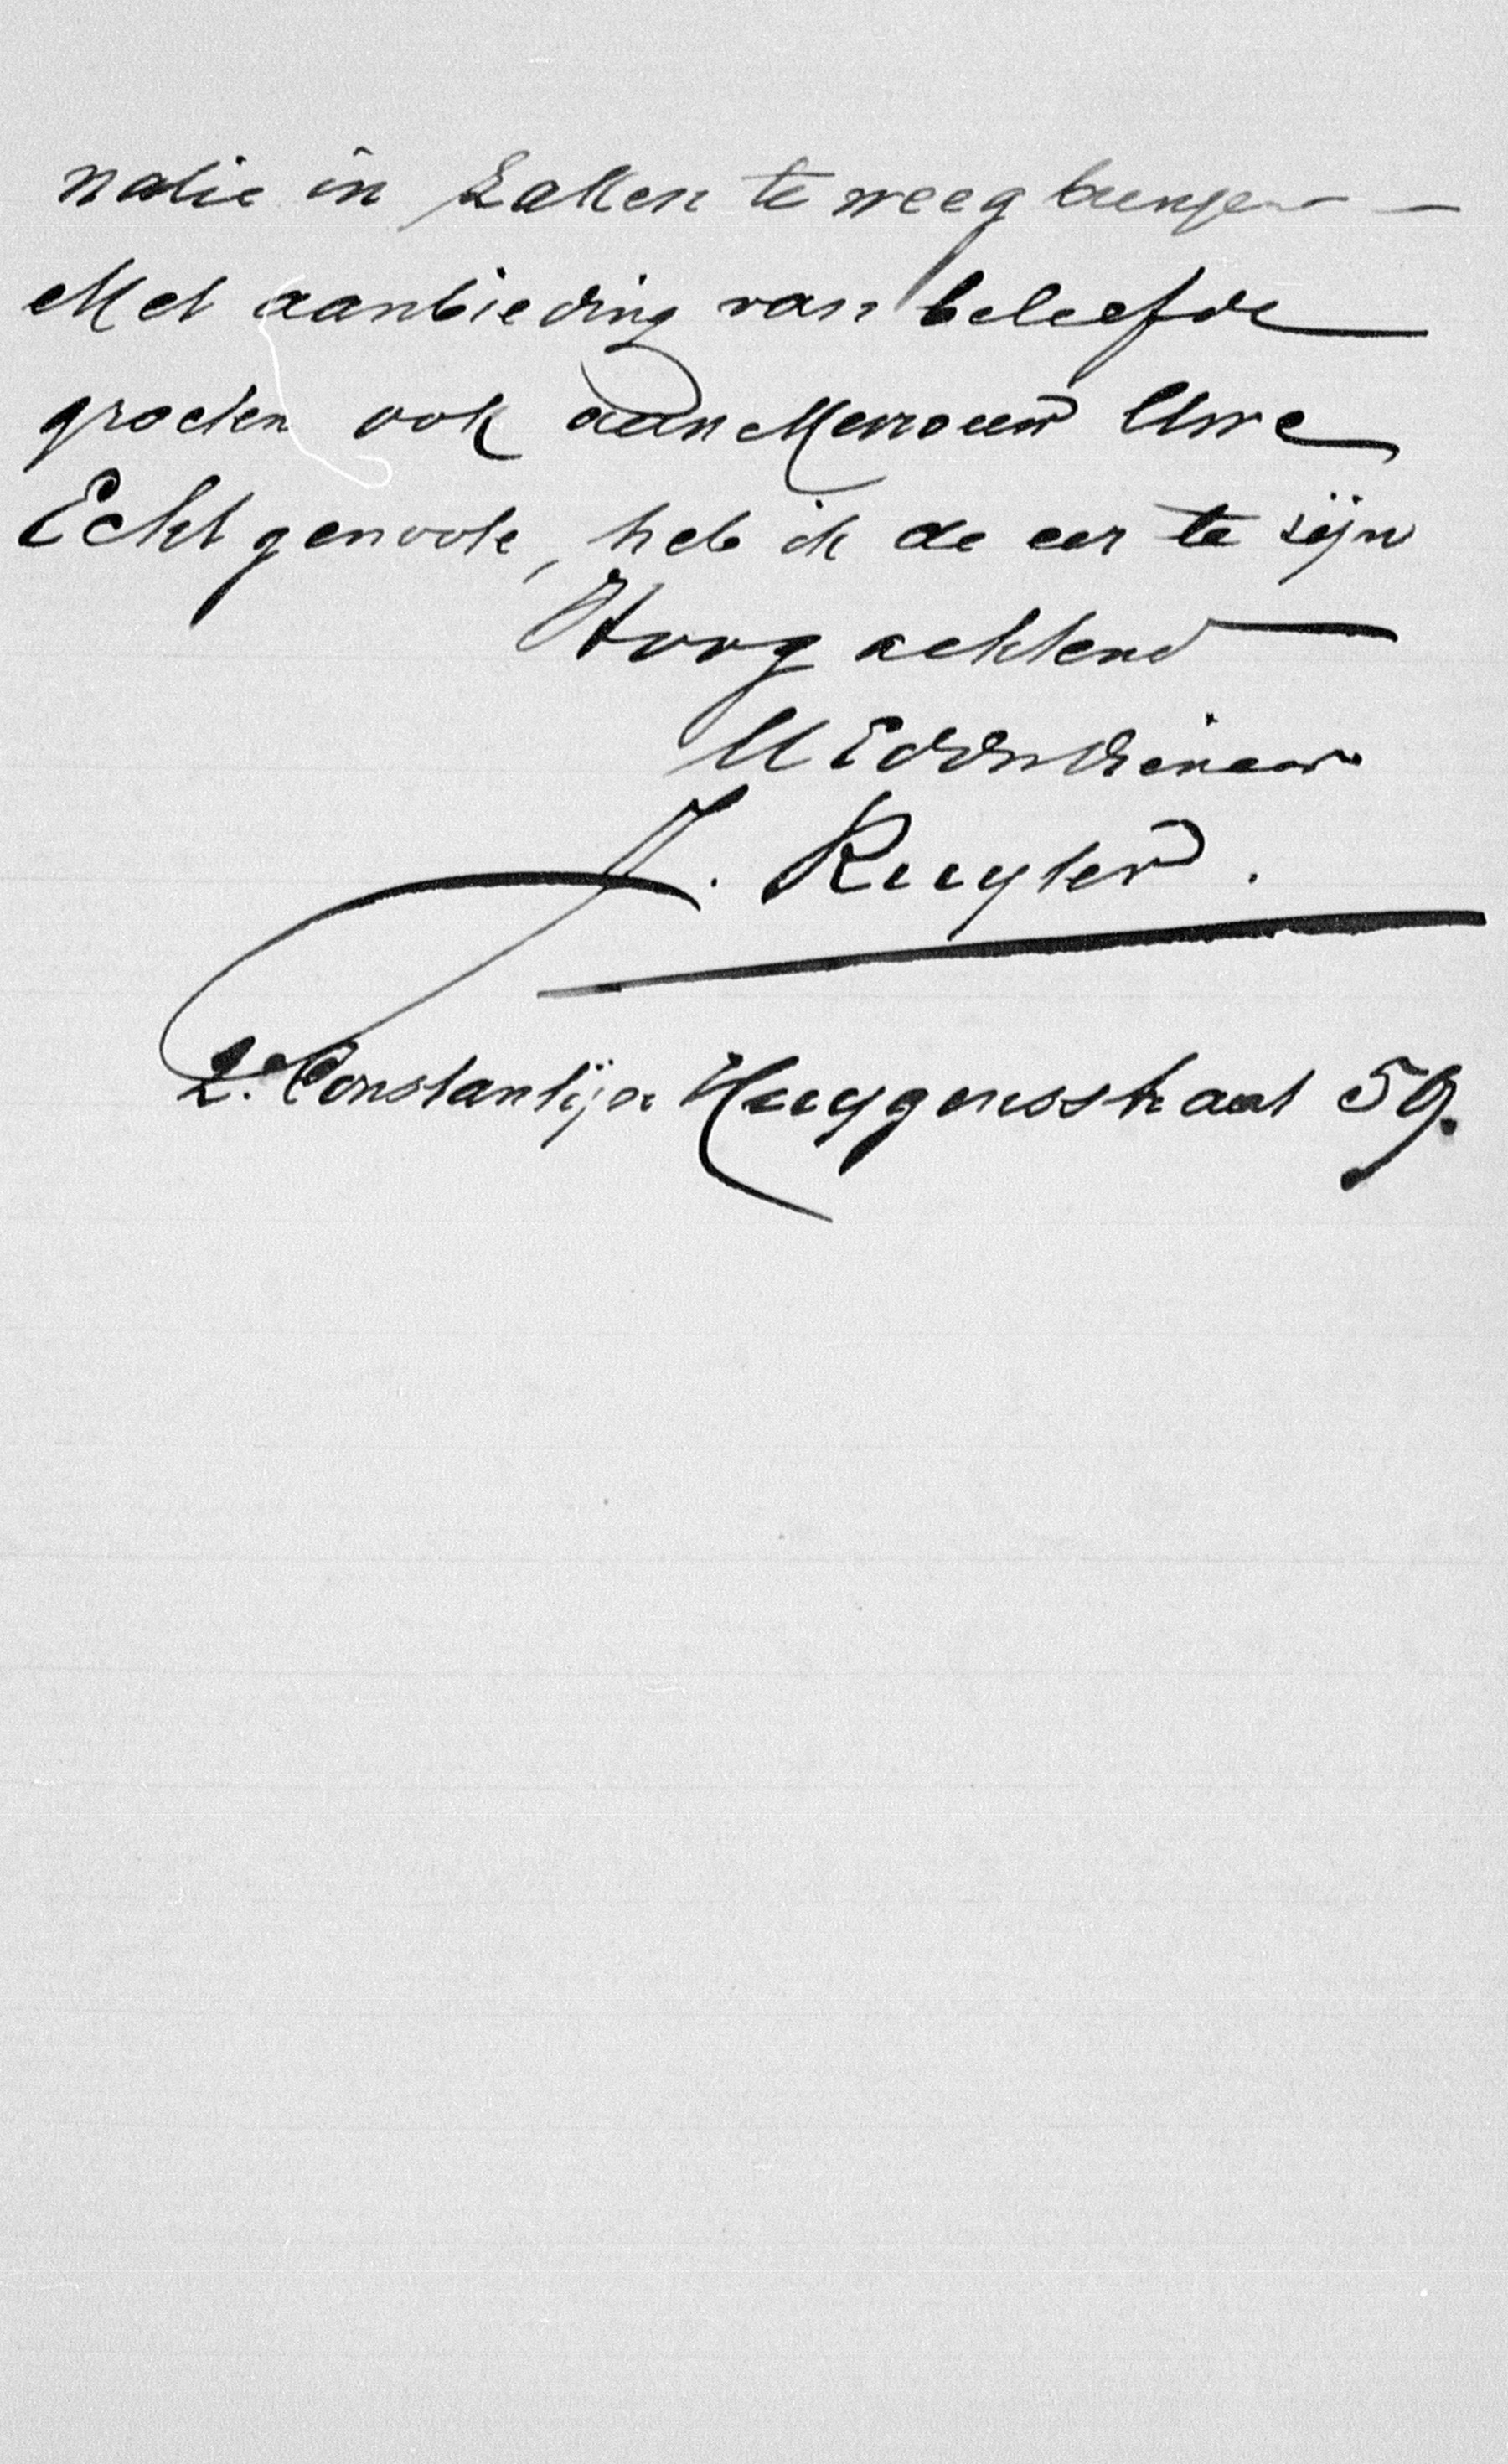 natie in zakken te weeg brengen —
Met aanbieding van beleefde
groeten ook aan Mevrouw Uwe
Echtgenoote, heb ik de eer te zijn
Hoogachtend
U Eddndienaar
J. Ruyter.
2e Constantijn Huygensstraat 59.